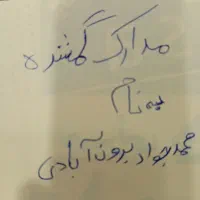 مدارک گمشده
به نام
محمد جواد برون آبادی